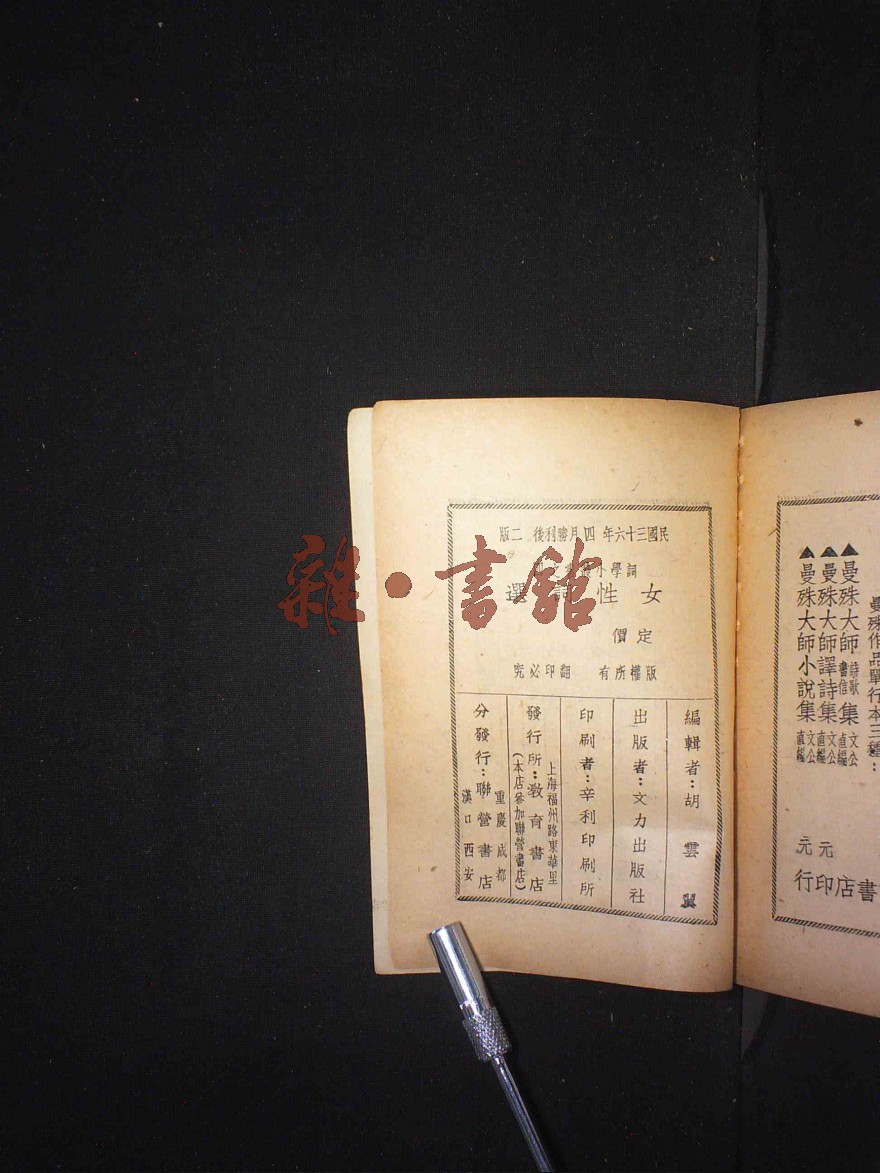 民國三十六年四月勝利後二版
詞學小叢書之
女性詞選
定價
版權所有 翻印必究
編輯者：胡雲翼
出版者：文力出版社
印刷者：辛利印刷所
上海福州路東華里
發行所：教育書店
（本店參加聯營書店）
重慶成都
分發行：聯營書店
漢口西安
曼殊作品單行本三種：
▲曼殊大師詩歌書信集 文公直編
▲曼殊大師譯詩集 文公直編 元
▲曼殊大師小說集 文公直編 元
書店印行
雜·書館